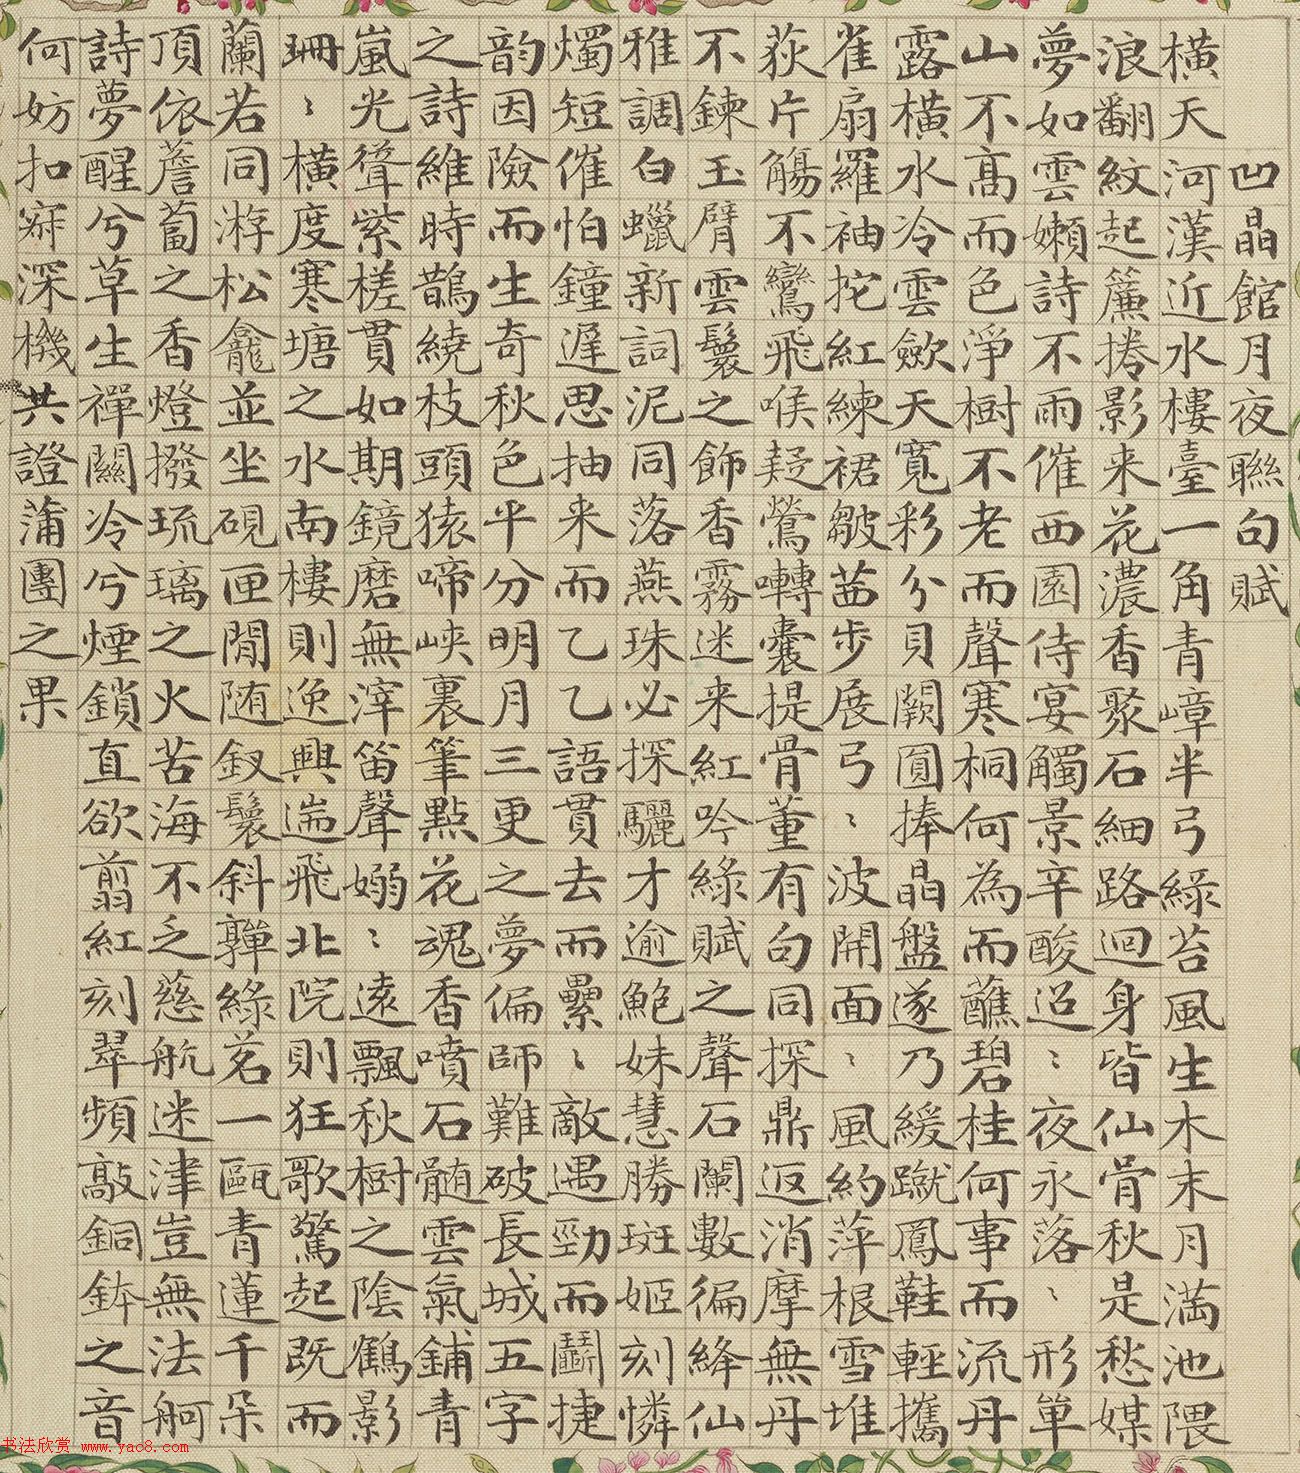 凹晶館月夜聯句賦
橫天河漢近水樓臺一角青嶂半弓綠苔風生木末月滿池隈
浪翻紋起簾捲影来花濃香聚石細路迴身皆仙骨秋是愁媒
夢如雲嬾詩不雨催西園侍宴觸景辛酸迢〻夜永落〻形單
山不髙而色淨樹不老而聲寒桐何為而蘸碧桂何事而流丹
露橫水冷雲歛天寬彩分貝闕圓捧晶盤遂乃緩蹴鳳鞋輕攜
雀扇羅袖拕紅練裙皺茜步展弓〻波開面〻風約萍根雪堆
荻片觴不鸞飛喉疑鶯囀囊提骨董有句同探鼎返消摩無丹
不鍊玉臂雲鬟之飾香霧迷来紅吟綠賦之聲石闌數徧絳仙
雅調白蠟新詞泥同落燕珠必探驪才逾鮑妹慧勝班姬刻憐
燭短催怕鐘遲思抽来而乙乙語貫去而纍〻敵遇勁而鬭捷
韵因險而生奇秋色平分明月三更之夢偏師難破長城五字
之詩維時鵲繞枝頭猿啼峽裏筆點花魂香噴石髄雲氣鋪青
嵐光聳紫槎貫如期鏡磨無滓笛聲嫋〻遠飄秋樹之陰鶴影
珊〻橫度寒塘之水南樓則逸興遄飛北院則狂歌驚起既而
蘭若同游松龕並坐硯匣閒随釵鬟斜嚲綠茗一甌青蓮千朵
頂依薝蔔之香燈撥琉璃之火苦海不乏慈航迷津豈無法舸
詩夢醒兮草生禪關冷兮煙鎖直欲翦紅刻翠頻敲銅鉢之音
何妨扣寂深機共證蒲團之果
书法欣赏 www.yac8.com